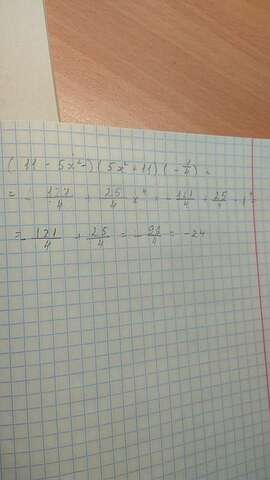 (11 - 5x²)(5x² + 11)(-1/4) =
= - 121/4 + 25/4 x⁴ = - 121/4 + 25/4 · 1⁴
= - 121/4 + 25/4 = - 96/4 = -24